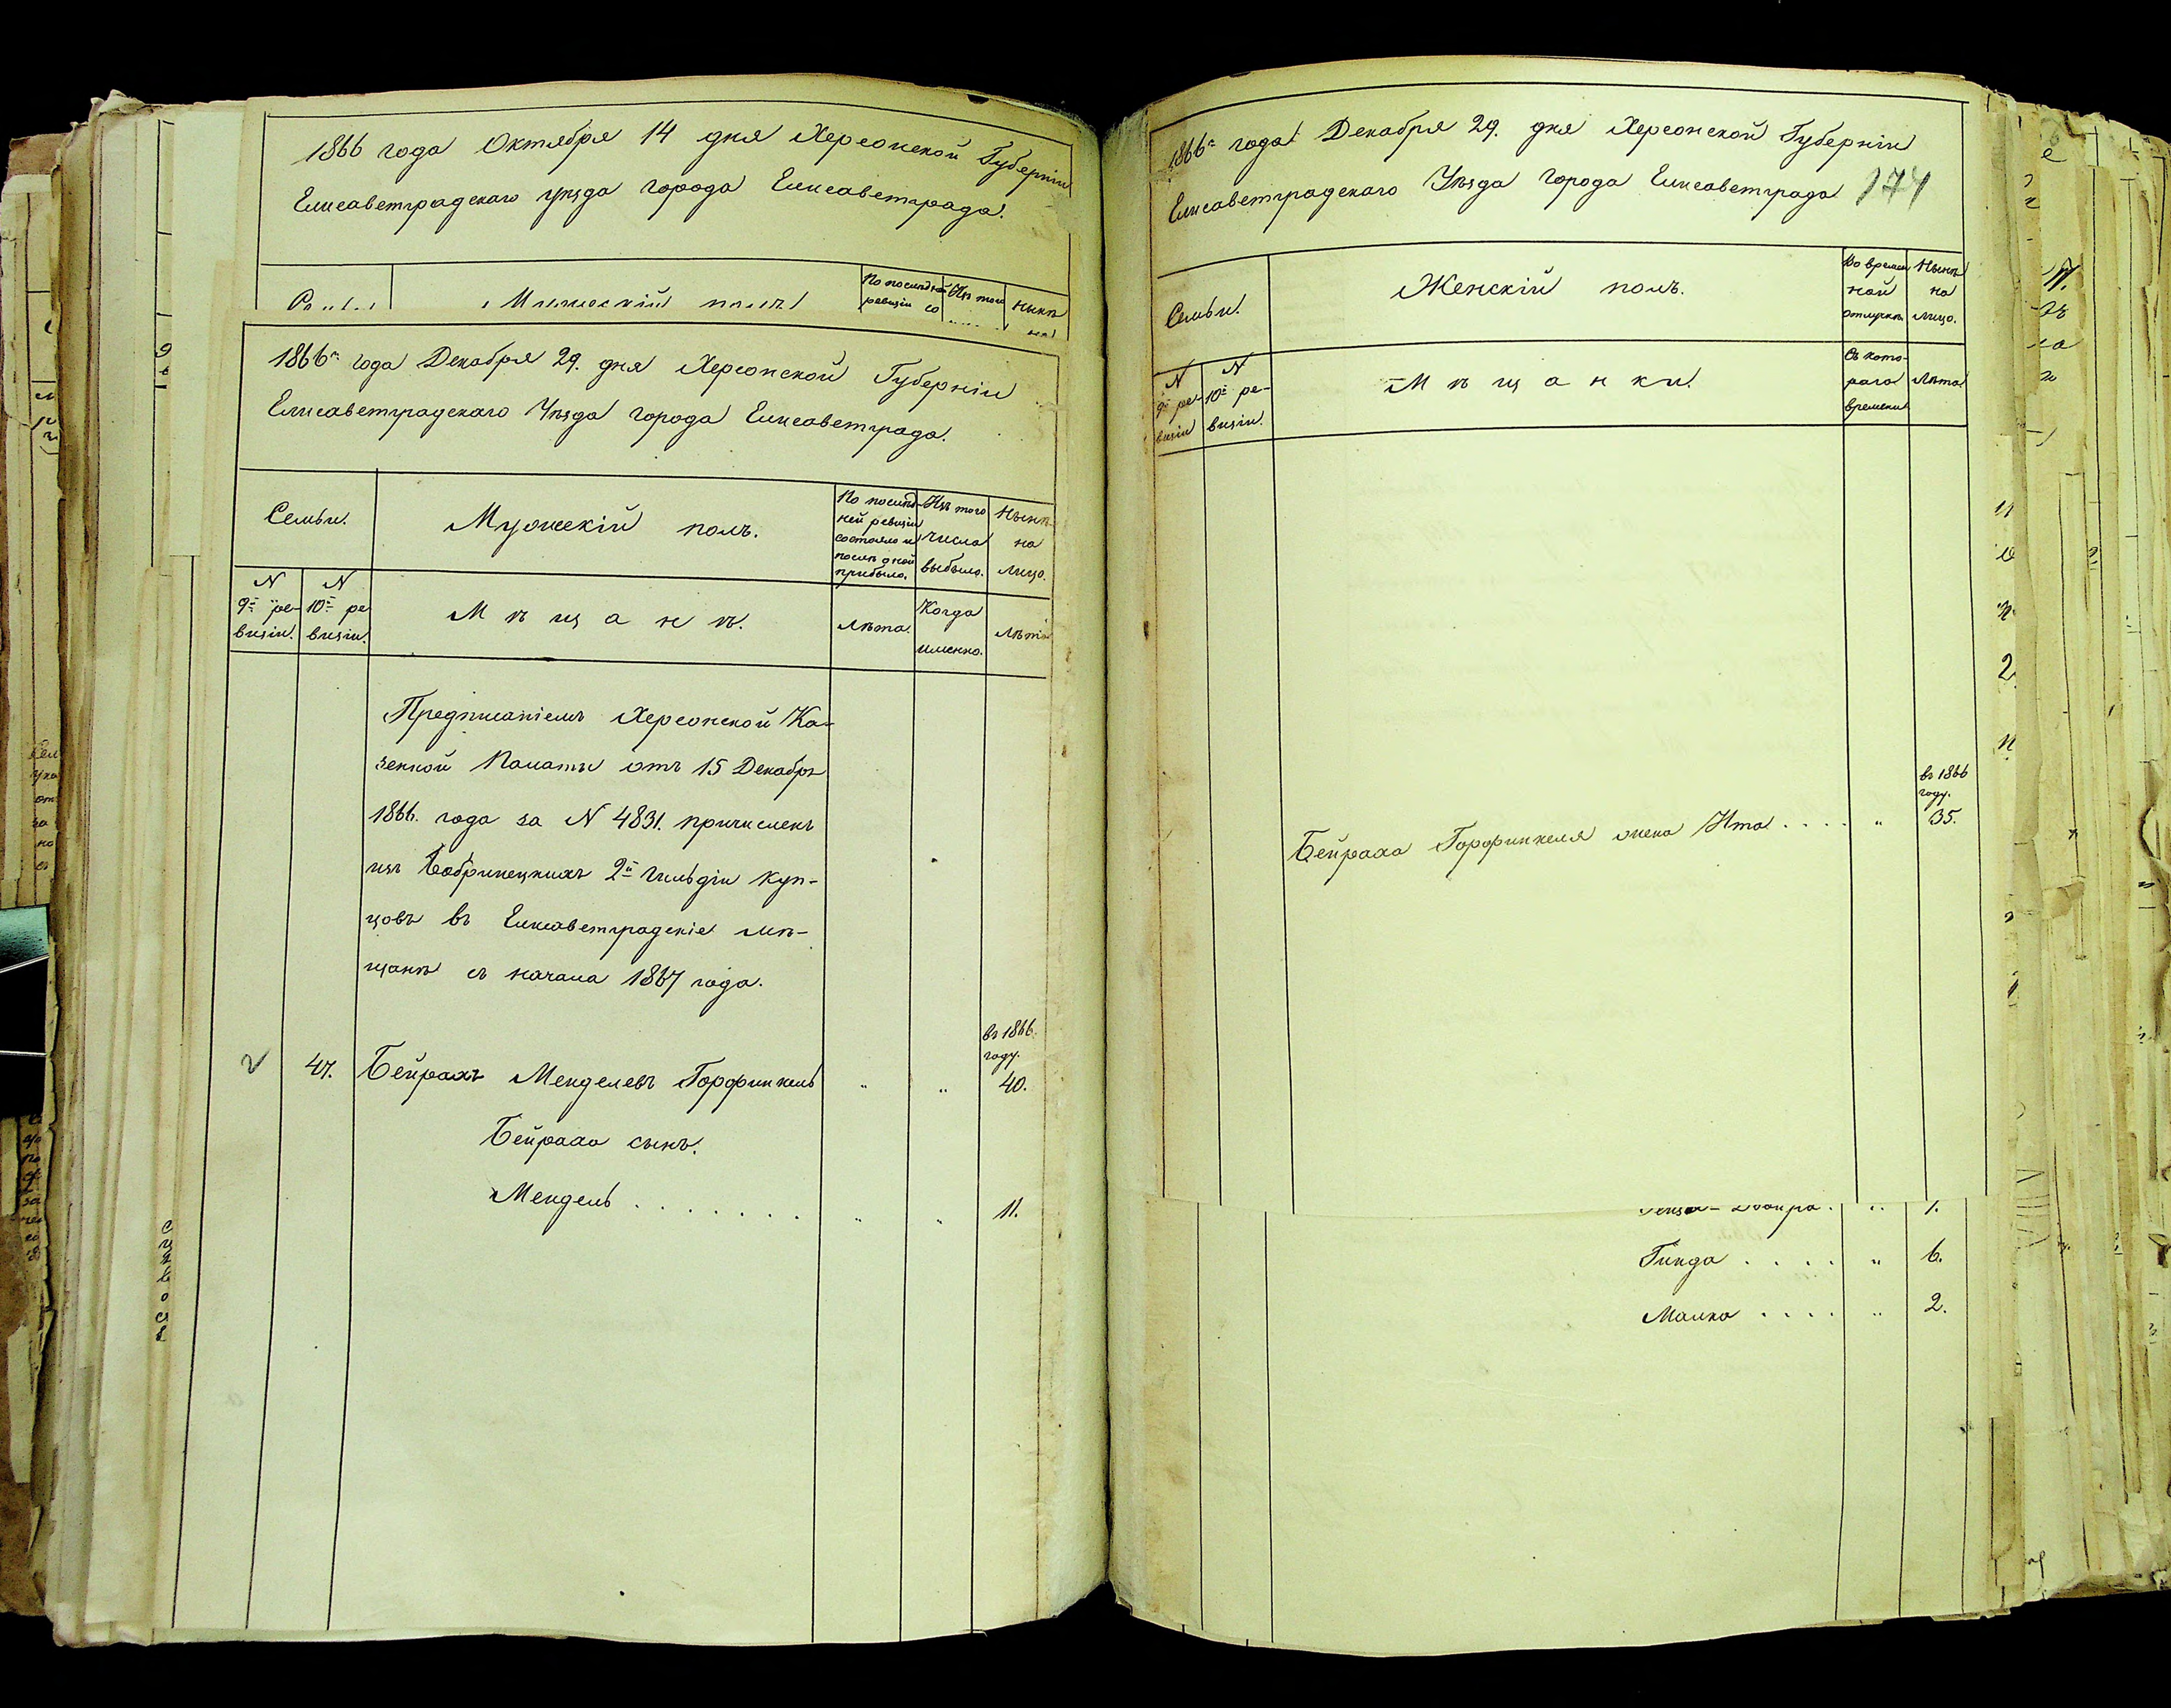 1866 года Октября 14 дня Херсонской Губерніи
Елисаветградскаго уѣзда города Елисаветграда.
По послѣдней
ревизіи со
Изъ того
Нынѣ
Мужескій полъ
1866го года Декабря 29. дня Херсонской Губерніи
Елисаветградскаго Уѣзда города Елисаветграда.
Семьи.
Мужескій полъ.
По послѣд-
ней ревизіи
состояло и
послѣ оной
прибыло.
Изъ того
числа
выбыло.
Нынѣ
на
лицо.
N
9й ре-
визіи.
N
10й ре
визіи.
М ѣ щ а н ѣ.
Лѣта.
Когда
именно.
Лѣта
Предписаніемъ Херсонской Ка-
зенной Палаты отъ 15 Декабря
1866. года за N 4831. причисленъ
изъ Бобринецкихъ 2й гильдіи куп-
цовъ въ Елисаветградскіе мѣ-
щанѣ съ начала 1867 года.
въ 1866.
году.
47. Бейрахъ Менделевъ Горфинкель " " 40.
Бейраха сынъ.
Мендель . . . . . . . " " 11.
1866го года Декабря 29. дня Херсонской Губерніи
Елисаветградскаго Уѣзда города Елисаветграда 174
Семьи.
Женскій полъ.
Во времен
ной
отлучкѣ.
Нынѣ
на
лицо.
N
9й ре-
визіи
N
10й ре-
визіи.
М ѣ щ а н к и.
Съ кото-
раго
времени
Лѣта
въ 1866
году.
Бейраха Горфинкеля жена Ита . . . . " 35.
Двойра . " 1.
Гинда . . . . " 6.
Малка . . . . " 2.